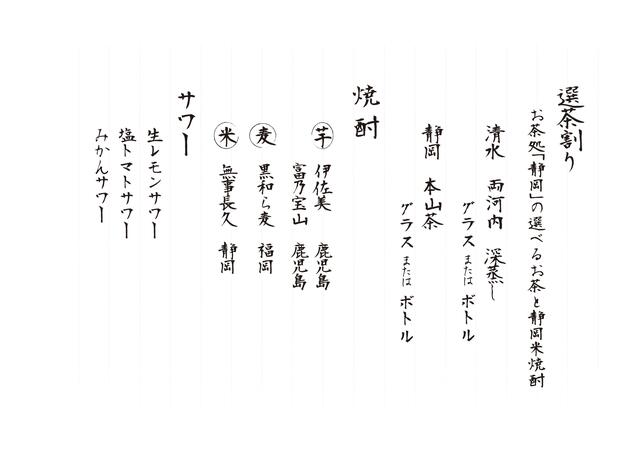 選茶割り
お茶処「静岡」の選べるお茶と静岡米焼酎
清水 両河内 深蒸し
グラス または ボトル
静岡 本山茶
グラス または ボトル
焼酎
芋 伊佐美 鹿児島
富乃宝山 鹿児島
麦 黒和ら麦 福岡
米 無事長久 静岡
サワー
生レモンサワー
塩トマトサワー
みかんサワー